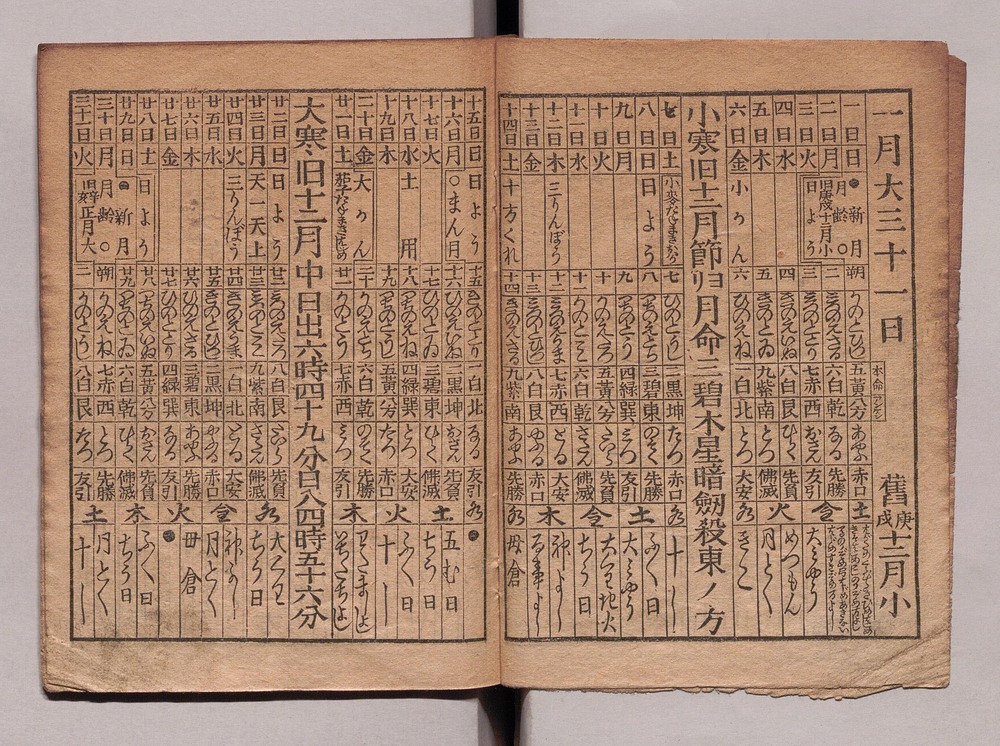 一月大三十一日 舊庚戌十二月小
一日 日 ●新月 朔 かのとひつじ 五黄 赤口 土
二日 月 月齢〇 旧庚戌十二月小 二 みづのえさる 六白 乾 なる 先勝
三日 火 日よう 三 みづのととり 七赤 西 おさん 友引 金 大みやう
四日 水 四 きのえいぬ 八白 艮 ひらく 先負 めつもん
五日 木 五 きのとゐ 九紫 南 とづ 佛滅 火 月とく
六日 金 小かん 六 ひのえね 一白 北 とづ 大安 きこ
小寒旧十二月節ヨリ月命三碧木星暗劔殺東ノ方
七日 土 七 ひのとうし 二黒 坤 たつ 赤口 水 十し
八日 日 日よう 八 つちのえとら 三碧 東 のぞく 先勝 ふく日
九日 月 九 つちのとう 四緑 巽 みつ 友引 土 大みやう
十日 火 十 かのえたつ 五黄 たいら 先負 大みやう 地火
十一日 水 十一 かのとみ 六白 乾 さだん 佛滅 金 ちう日
十二日 木 三りんぼう 十二 みづのえうま 七赤 西 とる 大安 神よし
十三日 金 十三 みづのとひつじ 八白 艮 やぶる 赤口 木
十四日 土 十方くれ 十四 きのえさる 九紫 南 あやぶ 先勝 水 母倉
十五日 日 日よう 十五 きのととり 一白 北 なる 友引 水 ●
十六日 月 〇まん月 十六 ひのえいぬ 二黒 坤 おさん 先負 五む日
十七日 火 十七 ひのとゐ 三碧 東 ひらく 佛滅 土 ちう日
十八日 水 土用 十八 つちのえね 四緑 巽 とづ 大安 ふく日
十九日 木 十九 つちのとうし 五黄 たつ 赤口 火 十し
二十日 金 大かん 二十 かのえとら 六白 乾 のぞく 先勝
廿一日 土 廿一 かのとう 七赤 西 みつ 友引 木
大寒旧十二月中日出六時四十九分日入四時五十六分
廿二日 日 日よう 廿二 みづのえたつ 八白 艮 たいら 先負 水
廿三日 月 天一天上 廿三 みづのとみ 九紫 南 さだん 佛滅 ちう日
廿四日 火 三りんぼう 廿四 きのえうま 一白 北 とる 大安 金 神よし
廿五日 水 廿五 きのとひつじ 二黒 坤 やぶる 赤口 月とく
廿六日 木 廿六 ひのえさる 三碧 東 あやぶ 先勝 母倉
廿七日 金 廿七 ひのととり 四緑 巽 なる 友引 火 ●
廿八日 土 廿八 つちのえいぬ 五黄 おさん 先負 ふく日
廿九日 日 日よう 廿九 つちのとゐ 六白 乾 ひらく 佛滅 木 ちう日
三十日 月 ●新月 月齢〇 朔 かのえね 七赤 西 とづ 先勝 月とく
三十一日 火 旧辛亥正月大 二 かのとうし 八白 艮 たつ 友引 土 十し